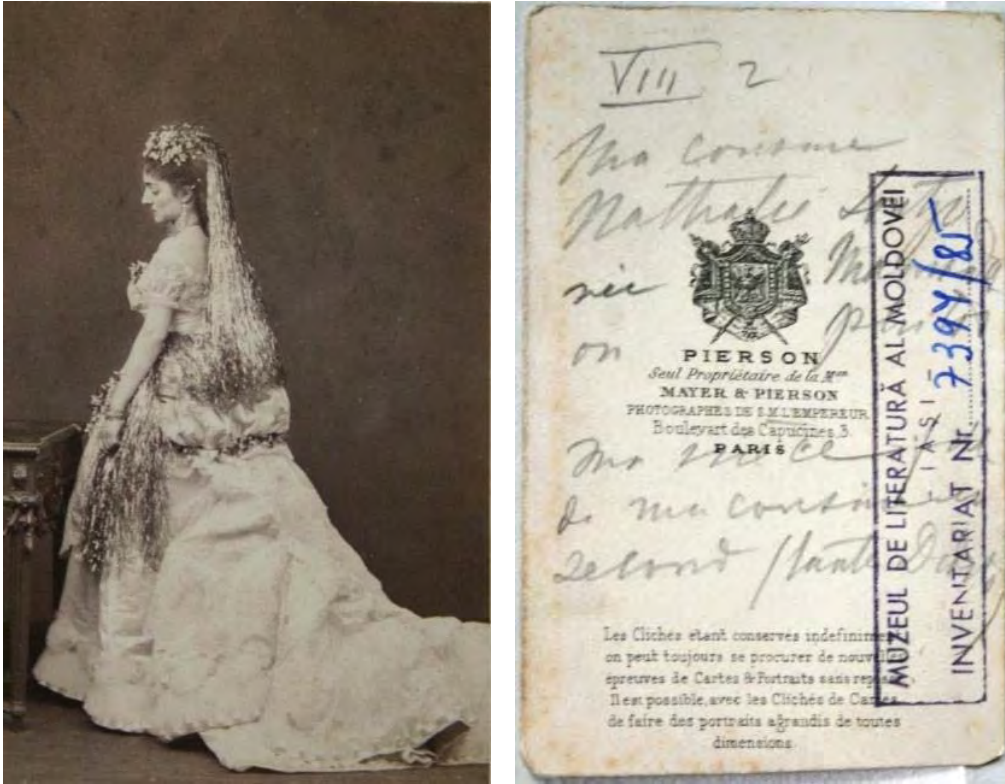 VIII 2
Ma cousine
Nathalie
née
on
PIERSON
Seul Propriétaire de la Mon
MAYER & PIERSON
PHOTOGRAPHES DE S.M.L'EMPEREUR
Boulevart des Capucines, 3
PARIS
Ma
de ma cousine
second
Les Clichés étant conservés indéfiniment
on peut toujours se procurer de nouvelles
épreuves de Cartes & Portraits sans repose.
Il est possible, avec les Clichés de Cartes,
de faire des portraits agrandis de toutes
dimensions
MUZEUL DE LITERATURĂ AL MOLDOVEI
IAȘI
INVENTARIAT Nr. 7394/85